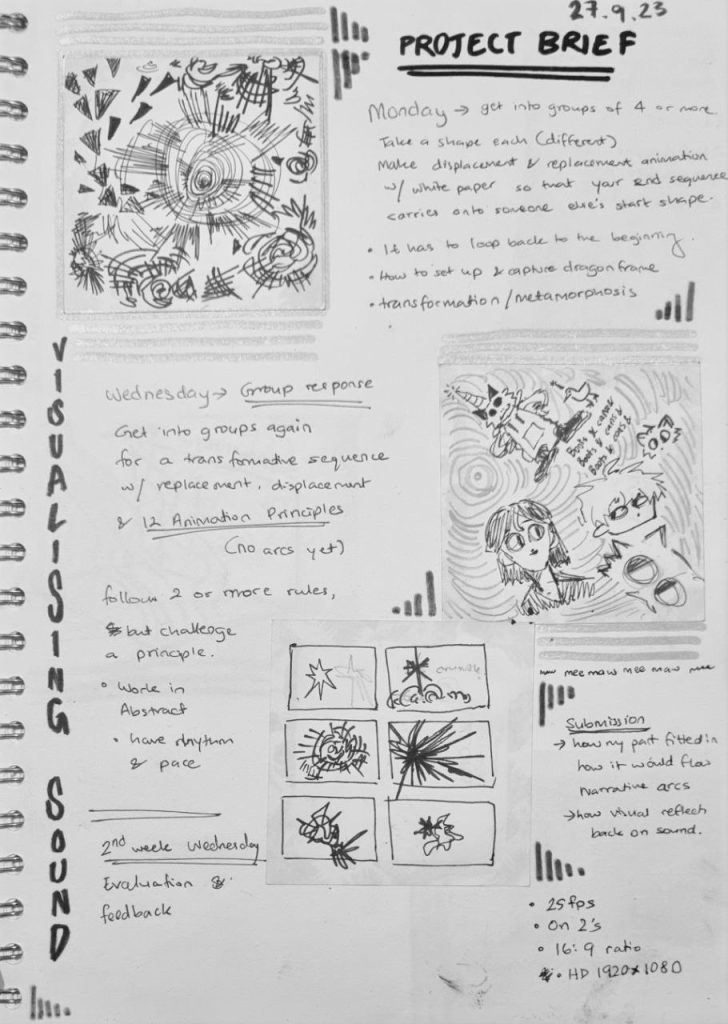 27.9.23
PROJECT BRIEF
Monday → get into groups of 4 or more
Take a shape each (different)
Make displacement & replacement animation
w/ white paper so that your end sequence
carries onto someone else's start shape.
• It has to loop back to the beginning.
• How to set up & capture dragonframe
• transformation/metamorphosis
VISUALISING SOUND
Wednesday → Group response
Get into groups again
for a transformative sequence
w/ replacement, displacement
& 12 Animation Principles
(no arcs yet)
follow 2 or more rules,
but challenge
a principle.
• Work in
Abstract
• have rhythm
& pace
2nd week Wednesday
Evaluation &
feedback
Boots & cats &
Boots & cats &
Boots & cats &
crumble
maw mee maw mee maw mee
Submission
→ how my part fitted in
how it would flow
Narrative arcs
→ how visual reflect
back on sound.
• 25fps
• On 2's
• 16:9 ratio
• HD 1920x1080